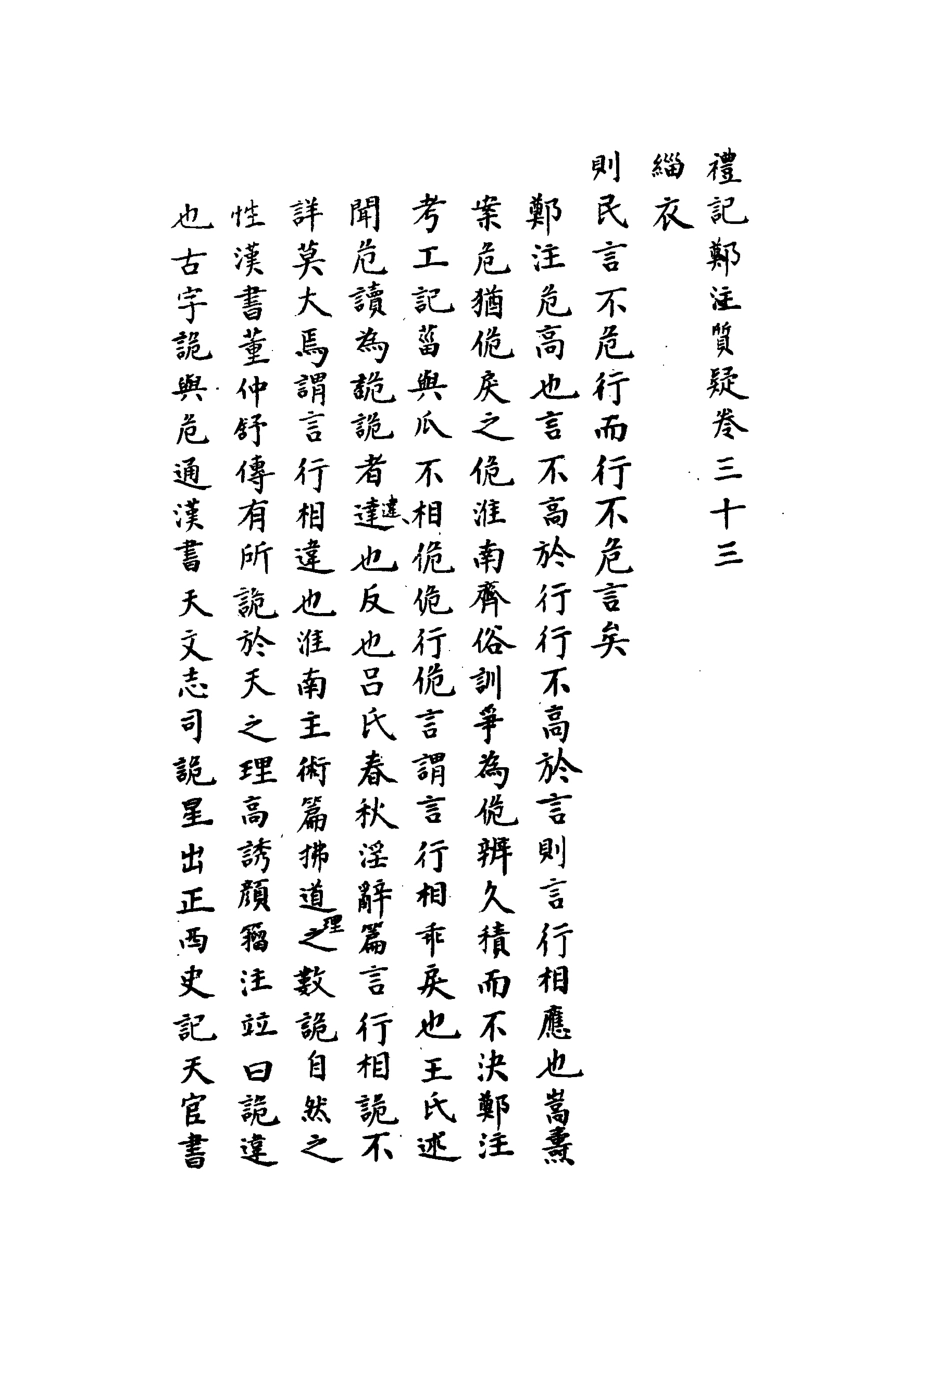 禮記鄭注質疑卷三十三
緇衣
則民言不危行而行不危言矣
鄭注危高也言不高於行行不高於言則言行相應也嵩燾
案危猶佹戾之佹淮南齊俗訓爭為佹辨久積而不決鄭注
考工記菑與瓜不相佹佹行佹言謂言行相乖戾也王氏述
聞危讀為詭詭者達違也反也呂氏春秋淫辭篇言行相詭不
詳莫大焉謂言行相違也淮南主術篇拂道理之數詭自然之
性漢書董仲舒傳有所詭於天之理高誘顏籀注竝曰詭違
也古字詭與危通漢書天文志司詭星出正西史記天官書